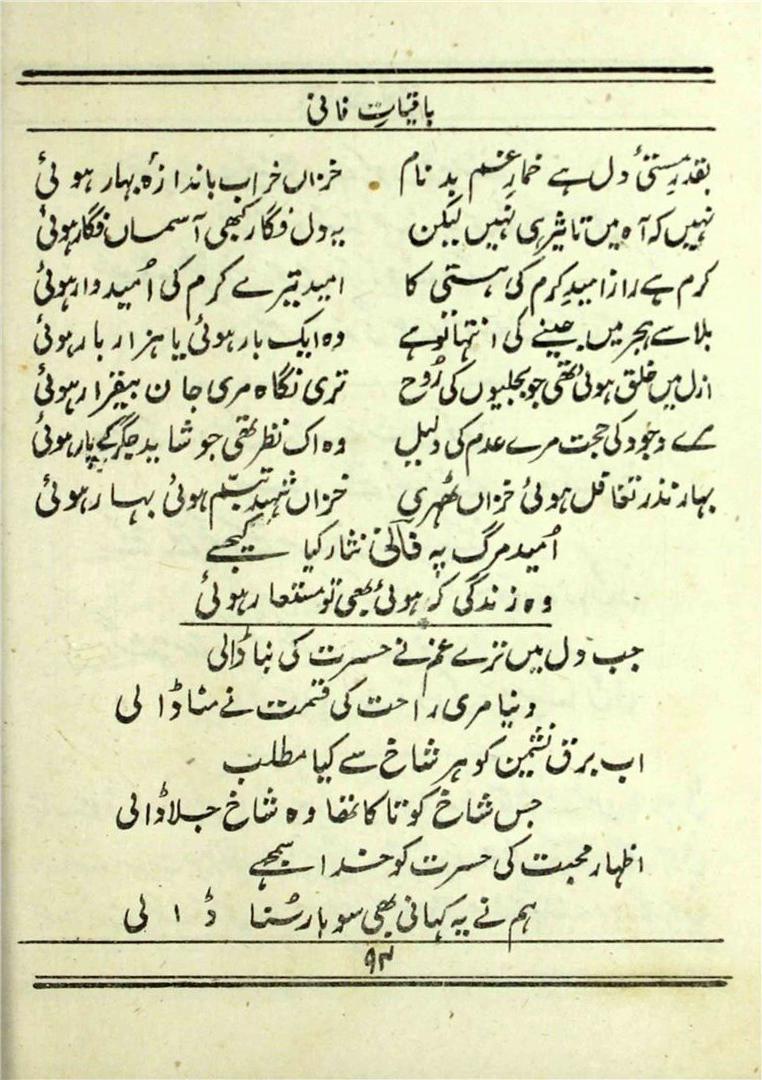 باقیاتِ فانی
بقدرِ مستیٔ دل ہے خمارِ غم بد نام خزاں خراب باندازۂ بہار ہوئی
نہیں کہ آہ میں تاثیر ہی نہیں لیکن یہ دل فگار کبھی آسماں فگار ہوئی
کرم ہے راز امیدِ کرم کی ہستی کا امید تیرے کرم کی اُمیدوار ہوئی
بلا سے ہجر میں جینے کی انتہا تو ہے وہ ایک بار ہوئی یا ہزار بار ہوئی
ازل میں خلق ہوئی تھی جو بجلیوں کی رُوح تری نگاہ مری جان بیقرار ہوئی
مے وجود کی حجت مرے عدم کی دلیل وہ اک نظر تھی جو شاید جگر کے پار ہوئی
بہار نذرِ تغافل ہوئی خزاں ٹھہری خزاں شہیدِ تبسّم ہوئی بہار ہوئی
اُمیدِ مرگ پہ فانی نثار کیا کیجے
وہ زندگی کہ ہوئی بھی تو مستعار ہوئی
جب دل میں ترے غم نے حسرت کی بنا ڈالی
دنیا مری راحت کی قسمت نے مٹا ڈالی
اب برقِ نشیمن کو ہر شاخ سے کیا مطلب
جس شاخ کو تاکا تھا وہ شاخ جلا ڈالی
اظہارِ محبت کی حسرت کو خدا سمجھے
ہم نے یہ کہانی بھی سو بار سُنا ڈالی